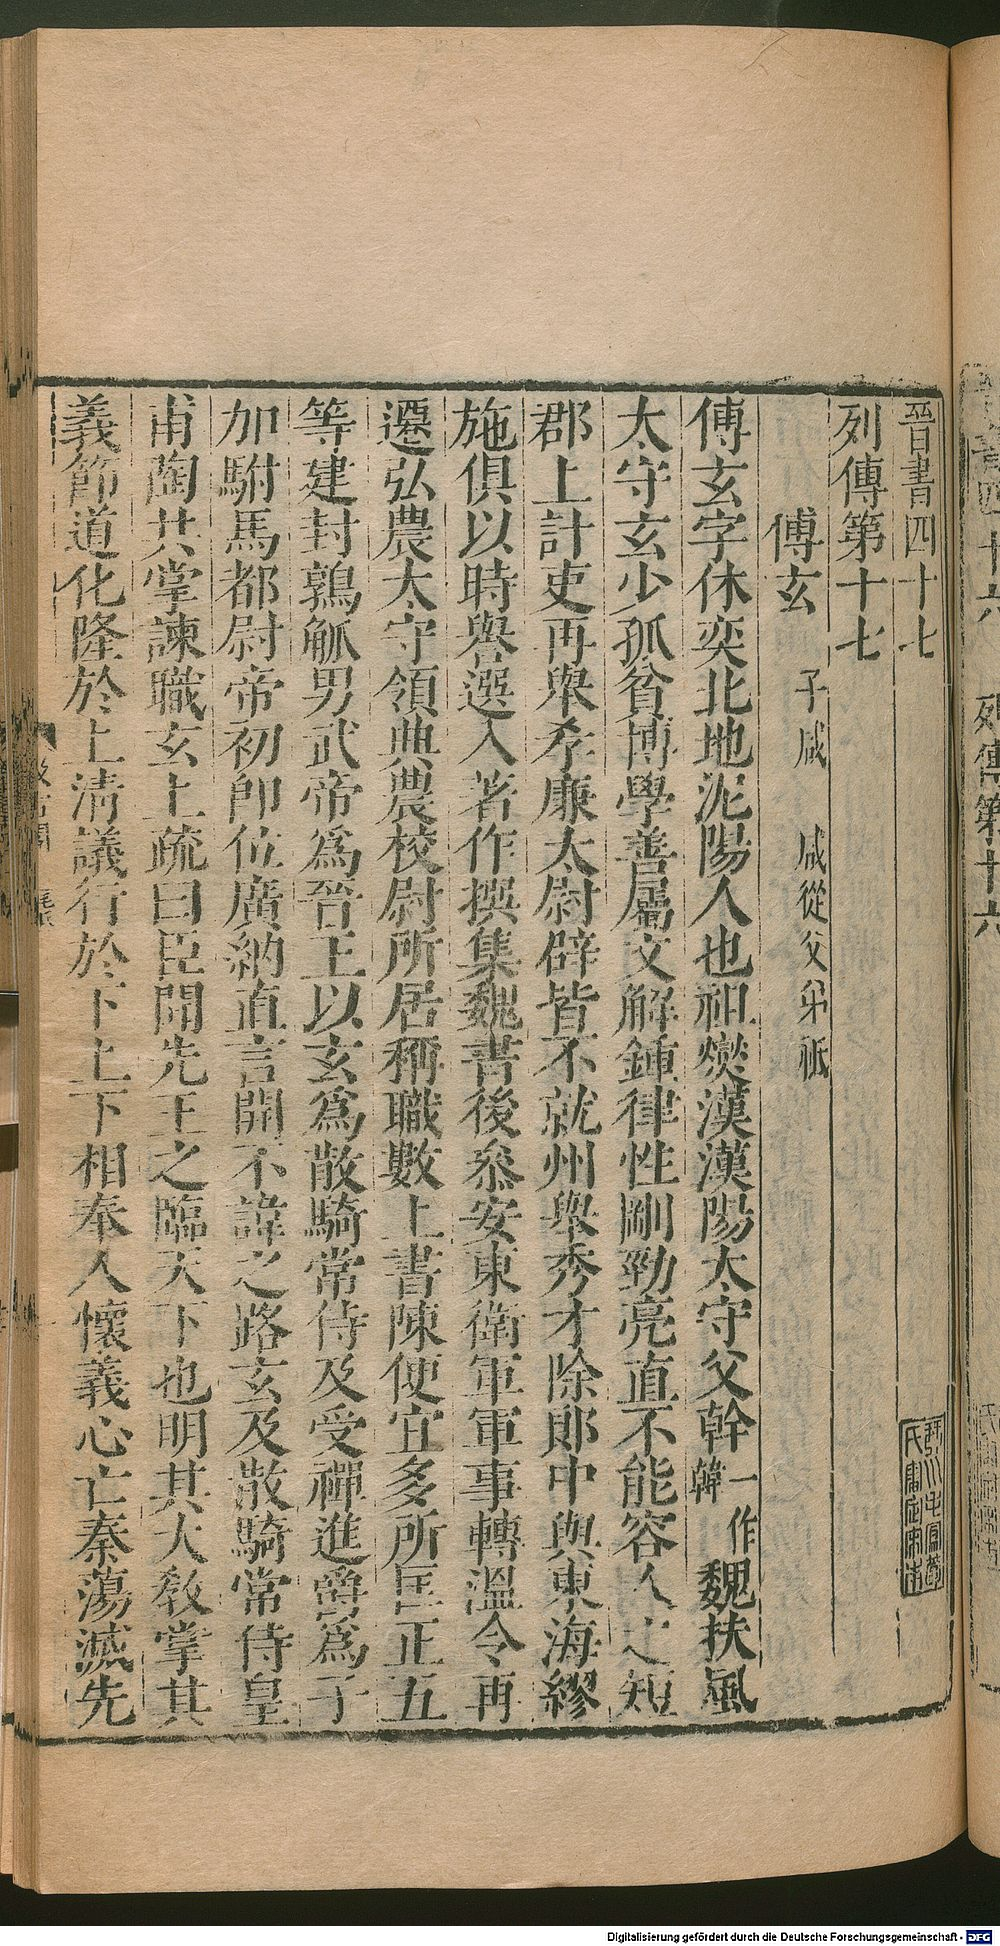 晉書四十七
琴川毛鳳苞氏審定宋本
列傳第十七
傅玄 子咸 咸從父弟祗
傅玄字休奕北地泥陽人也祖燮漢漢陽太守父幹一作韓魏扶風
太守玄少孤貧博學善屬文解鍾律性剛勁亮直不能容人之短
郡上計吏再舉孝廉太尉辟皆不就州舉秀才除郎中與東海繆
施俱以時譽選入著作撰集魏書後參安東衛軍軍事轉溫令再
遷弘農太守領典農校尉所居稱職數上書陳便宜多所匡正五
等建封鶉觚男武帝爲晉王以玄爲散騎常侍及受禪進爵爲子
加駙馬都尉帝初卽位廣納直言開不諱之路玄及散騎常侍皇
甫陶共掌諫職玄上疏曰臣聞先王之臨天下也明其大敎掌其
義節道化隆於上清議行於下上下相奉人懷義心亡秦蕩滅先
列傳第十六
Digitalisierung gefördert durch die Deutsche Forschungsgemeinschaft - DFG